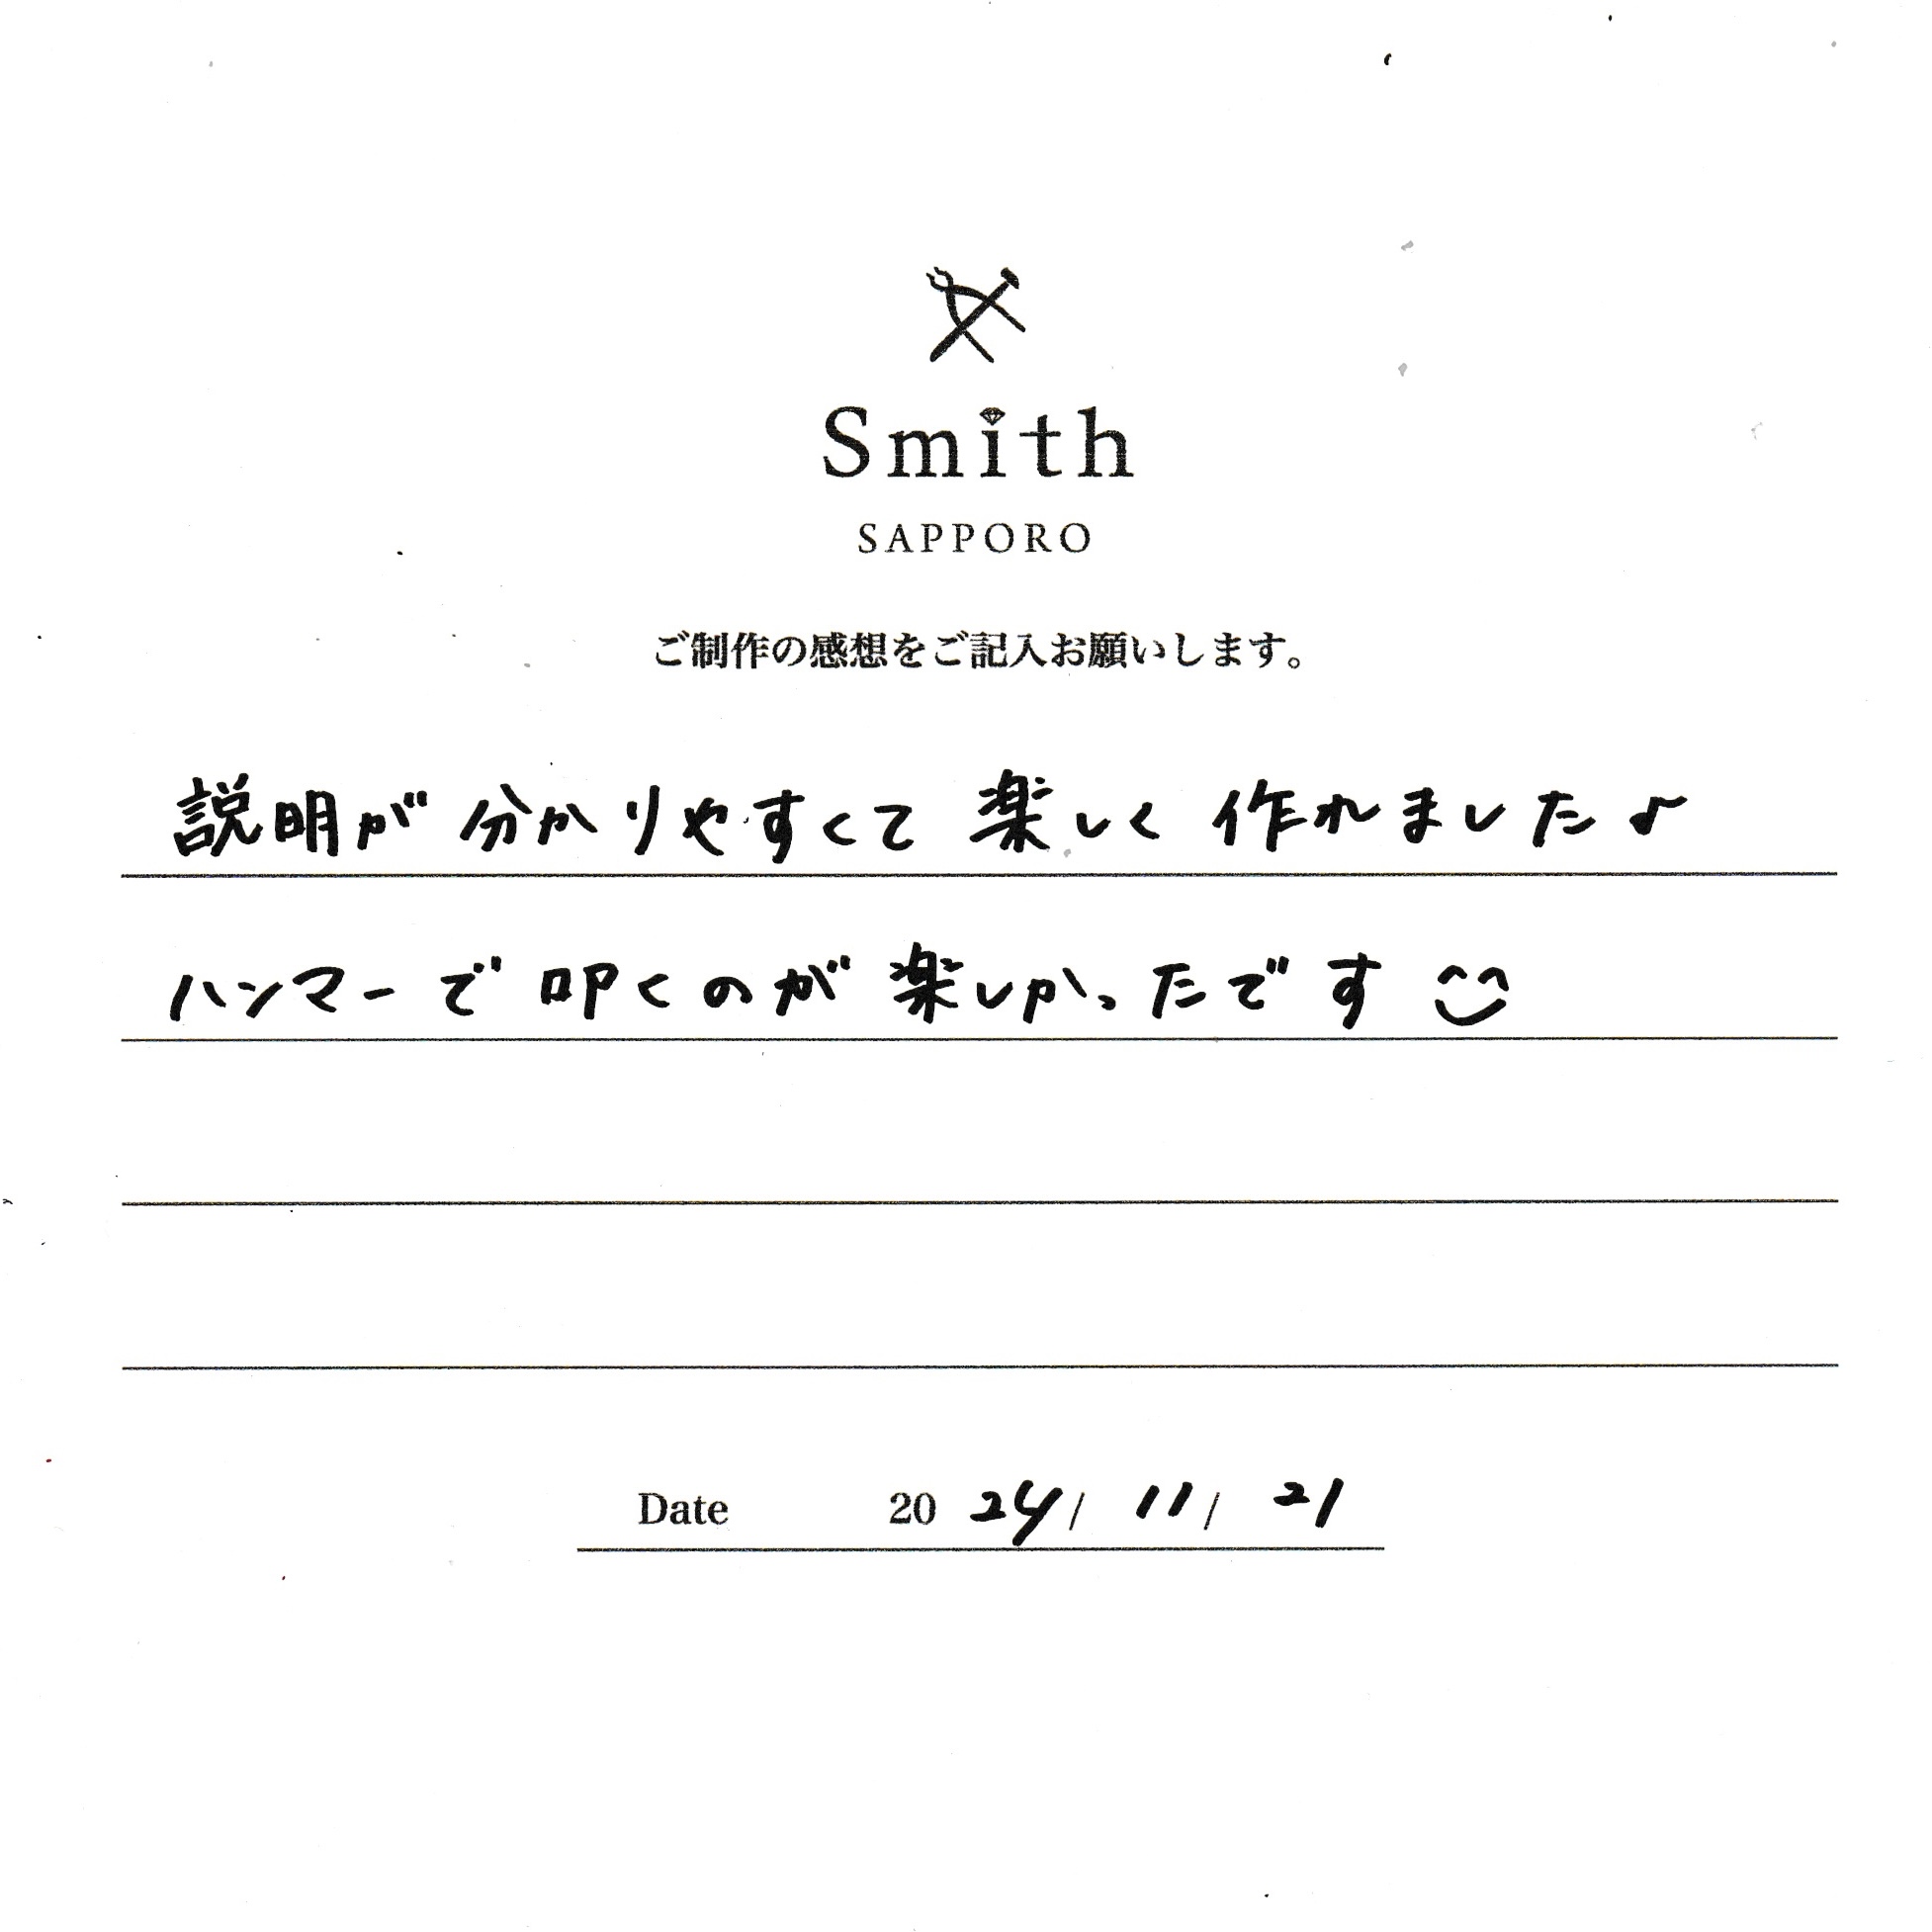 Smith
SAPPORO
ご制作の感想をご記入お願いします。
説明が分かりやすくて楽しく作れました♪
ハンマーで叩くのが楽しかったです
Date 2024/11/21